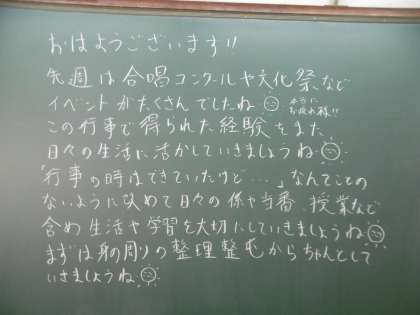 おはようございます!!
先週は合唱コンクールや文化祭など
イベントがたくさんでしたね 本当にお疲れ様!!
この行事で得られた経験をまた
日々の生活に活かしていきましょうね
「行事の時はできていたけど…」なんてことの
ないように改めて日々の係や当番、授業など
含め生活や学習を大切にしていきましょうね
まずは身の周りの整理整屯からちゃんとして
いきましょうね